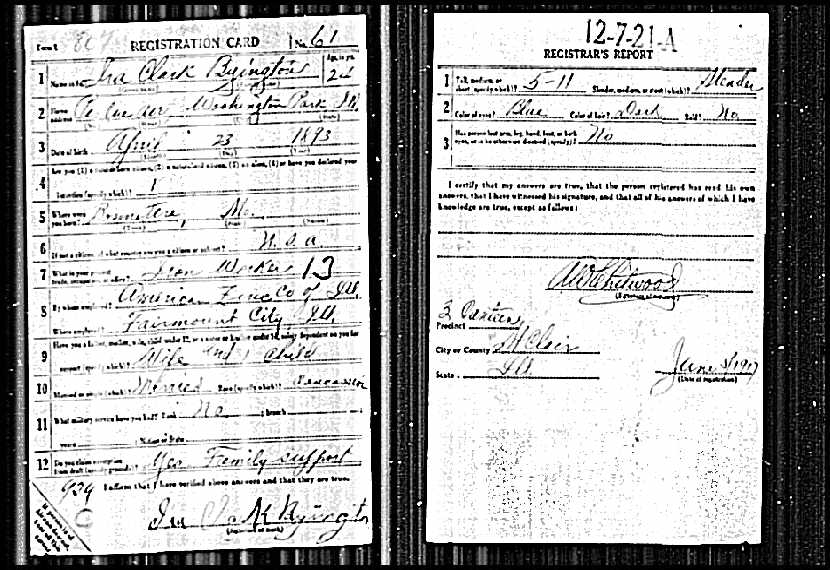 Form 1 807 REGISTRATION CARD No. 61
1 Name in full Ira Clark Byington Age, in yrs. 24
2 Home address Washington Park Ill.
3 Date of birth April 23 1893
4 Are you (1) a natural-born citizen, (2) a naturalized citizen, (3) an alien, (4) or have you declared your
intention (specify which)? 1
5 Where were you born? Mo.
6 If not a citizen, of what country are you a citizen or subject? U.S.a.
7 What is your present trade, occupation, or office? Iron Worker 13
8 By whom employed? American Zinc Co of Ill.
Where employed? Fairmount City, Ill.
9 Have you a father, mother, wife, child under 12, or a sister or brother under 12, solely dependent on you for
support (specify which)? Wife and 1 child
10 Married or single (which)? Married Race (specify which)? Caucasian
11 What military service have you had? Rank No ; branch ;
years ; Nation or State
12 Do you claim exemption from draft (specify grounds)? Yes Family support
939 I affirm that I have verified above answers and that they are true.
Ira Clark Byington
(Signature or mark)
12-7-21-A
REGISTRAR'S REPORT
1 Tall, medium, or short (specify which)? 5-11 Slender, medium, or stout (which)? Slender
2 Color of eyes? Blue Color of hair? Dark Bald? No
3 Has person lost arm, leg, hand, foot, or both eyes, or is he otherwise disabled (specify)? No
I certify that my answers are true, that the person registered has read his own
answers, that I have witnessed his signature, and that all of his answers of which I have
knowledge are true, except as follows:
Chetwood
(Signature of registrar)
Precinct 3
City or County St Clair
State Ill
June 5/1917
(Date of registration)